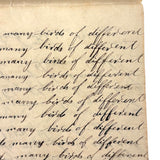 many birds of different
many birds of different
many birds of different
many birds of different
many birds of different
many birds of different
many birds of different
many birds of different